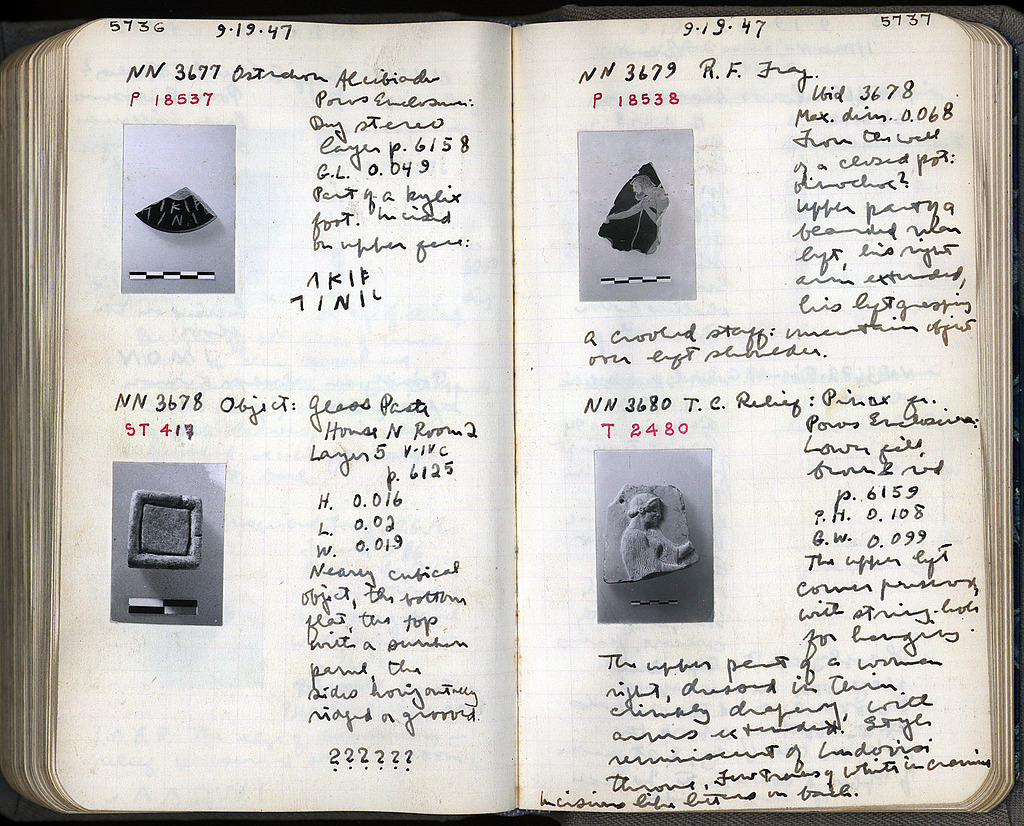 5736 9·19·47
NN 3677 Ostrakon Alcibiades
P 18537
Poros Enclosure:
Dug stereo
layer p. 6158
G.L. 0.049
Part of a kylix
foot. Incised
on upper face:
ΛΚΙΒ
ΛΙΝΙ
NN 3678 Object: Glass Paste
ST 417
House N Room 2
Layer 5 V-IV C
p. 6125
H. 0.016
L. 0.02
W. 0.019
Nearly cubical
object, the bottom
flat, the top
with a sunken
panel, the
sides horizontally
ridged or grooved.
??????
9·19·47 5737
NN 3679 R. F. Frag.
P 18538
Ibid 3678
Max. dim. 0.068
From the wall
of a closed pot:
oinochoe?
Upper part of a
bearded man
left, his right
arm extended,
his left grasping
a crooked staff: uncertain object
over left shoulder.
NN 3680 T.C. Relief: Pinax fr.
T 2480
Poros Enclosure:
Lower fill,
p. 6159
P.H. 0.108
G.W. 0.099
The upper left
corner preserved
with string-hole
for hanging.
The upper part of a woman
right, dressed in thin
clinging drapery, with
arms extended. Style
reminiscent of Ludovisi
throne. Few traces of white in crannies
Incisions like letters on back.